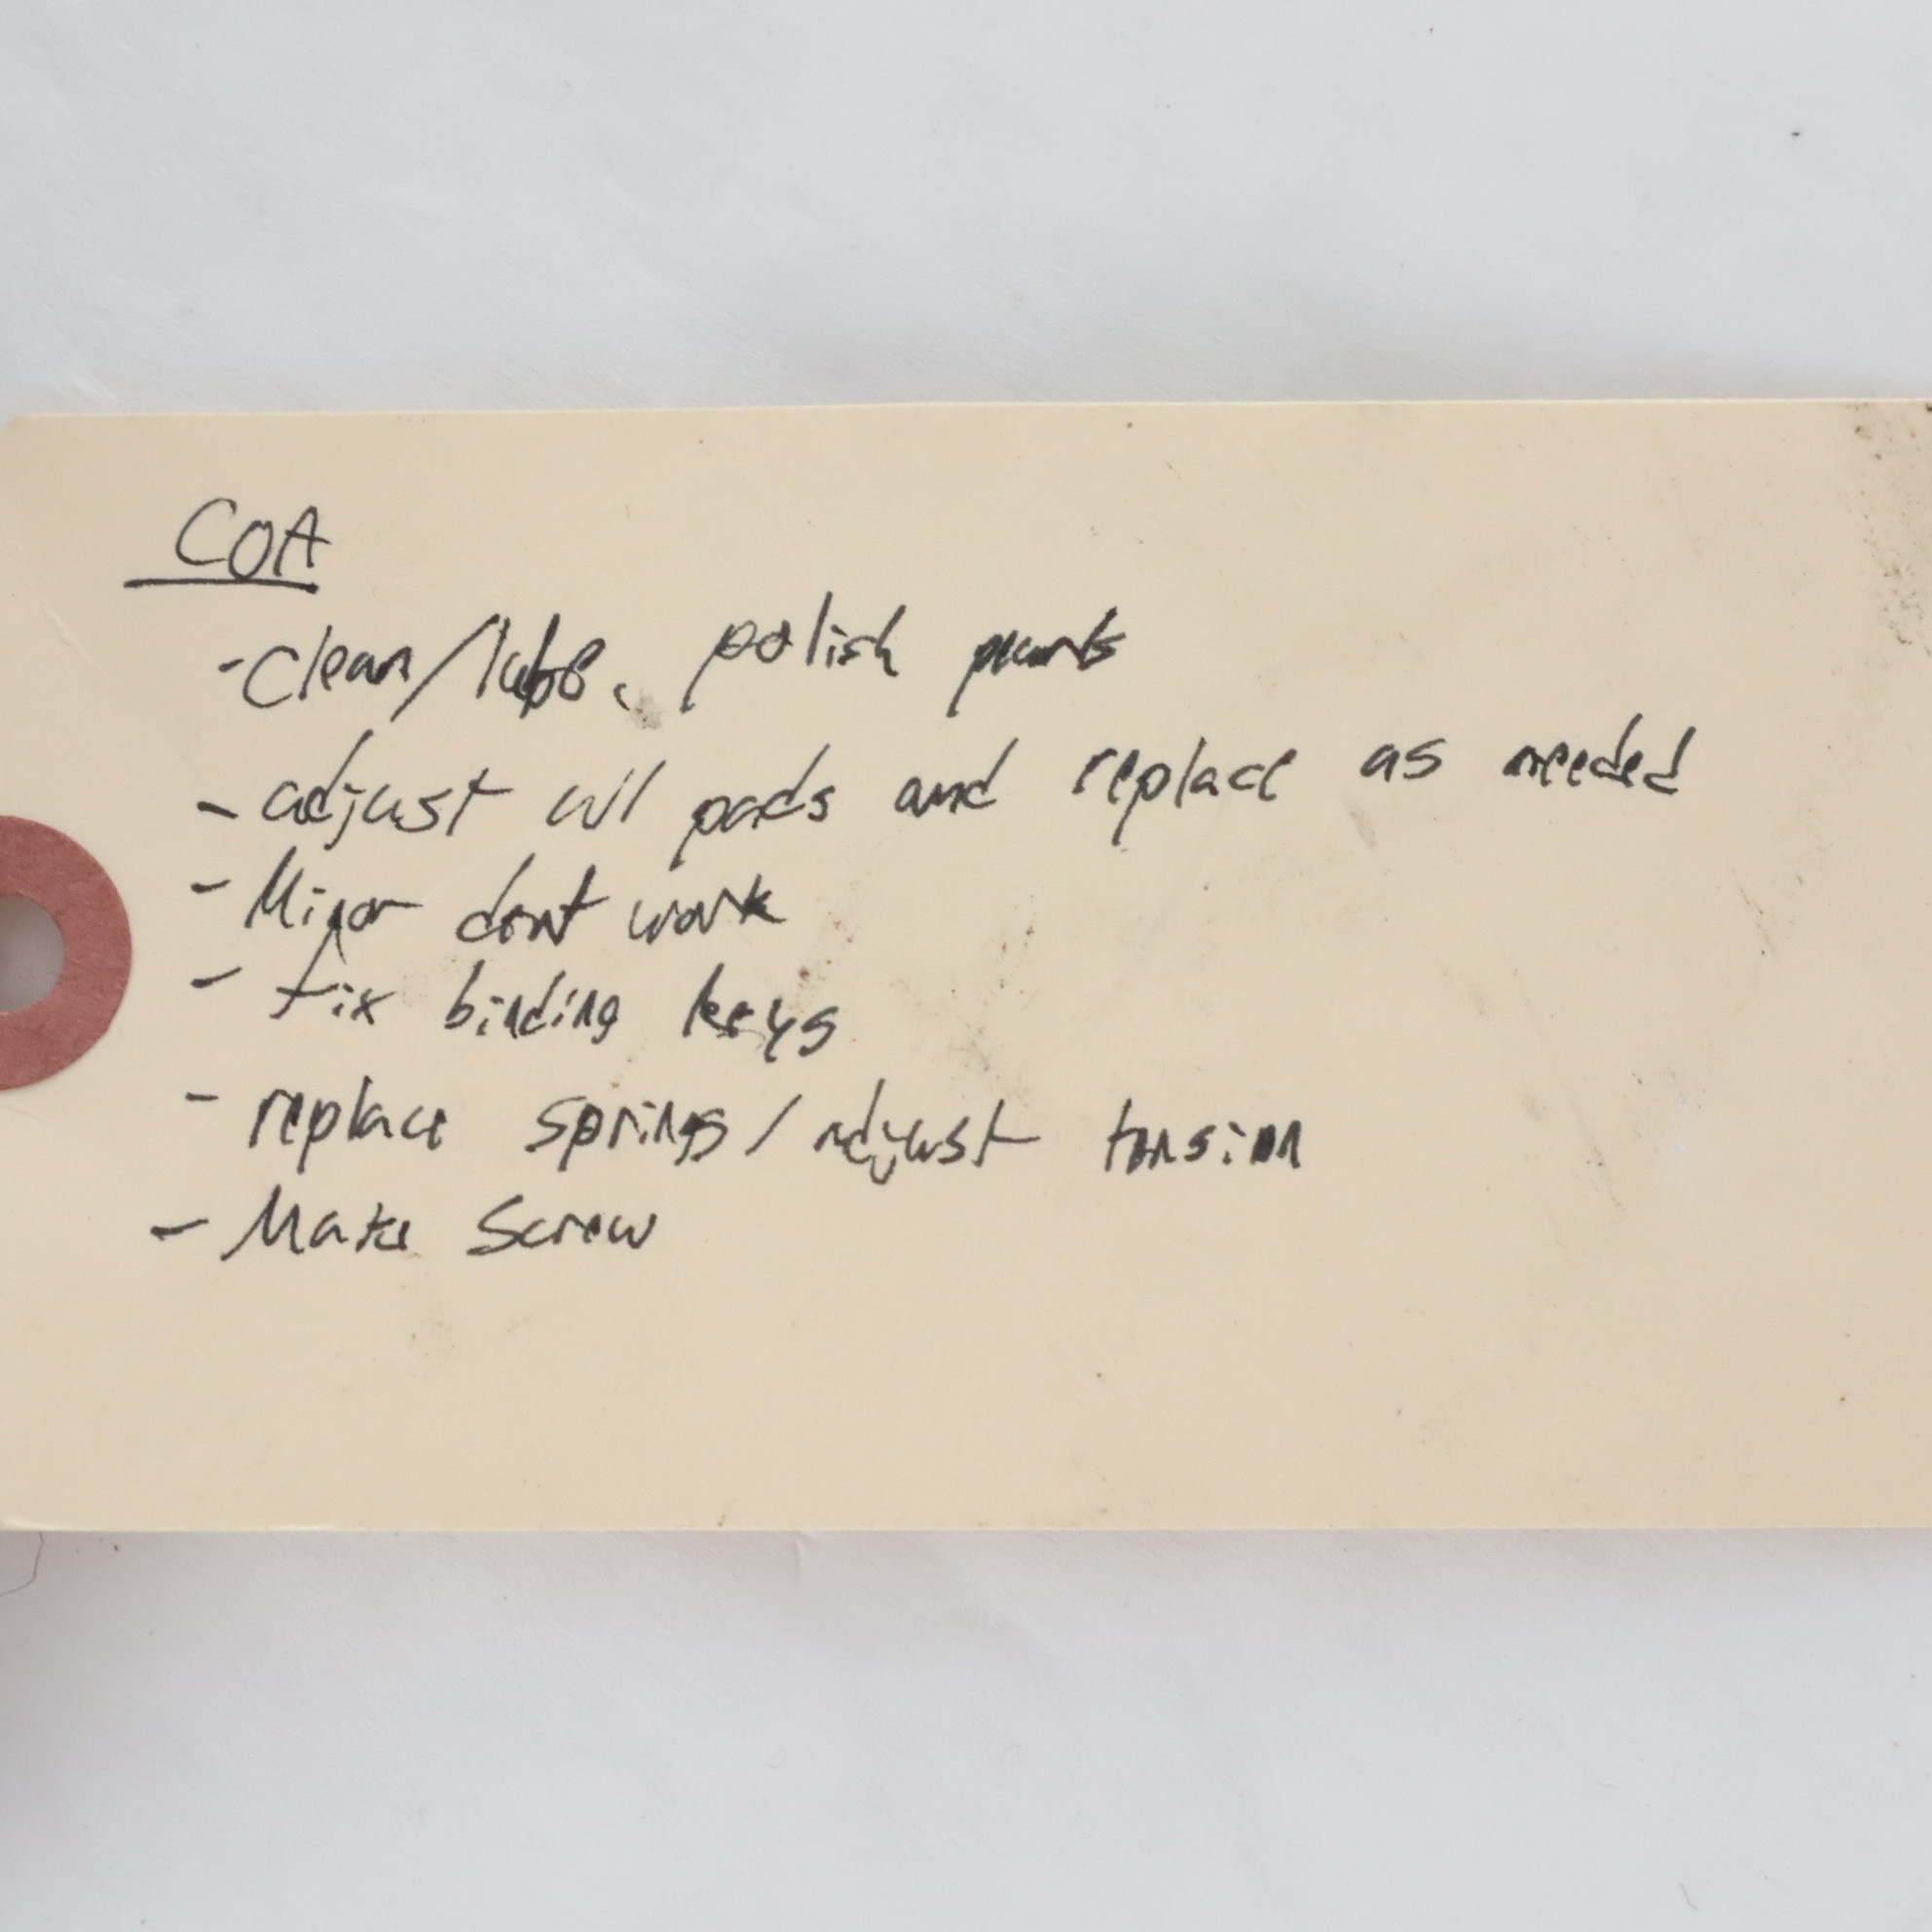 COA
- Clean/lube, polish parts
- adjust w/ pads and replace as needed
- Minor dent work
- fix binding keys
- replace springs/adjust tension
- Make Screw